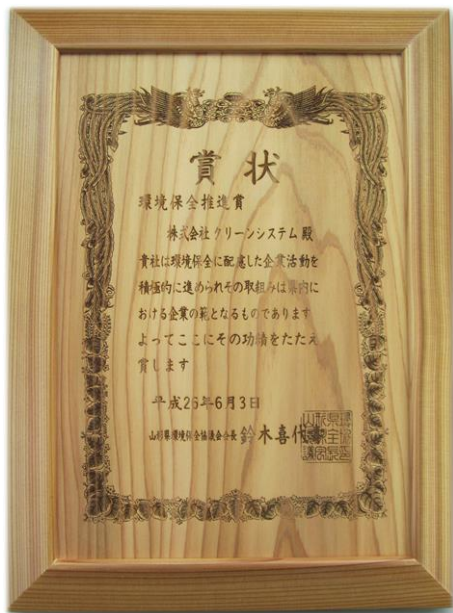 賞状
環境保全推進賞
株式会社クリーンシステム 殿
貴社は環境保全に配慮した企業活動を
積極的に進められその取組みは県内に
おける企業の範となるものであります
よってここにその功績をたたえ
賞します
平成26年6月3日
山形県環境保全協議会会長 鈴木喜代